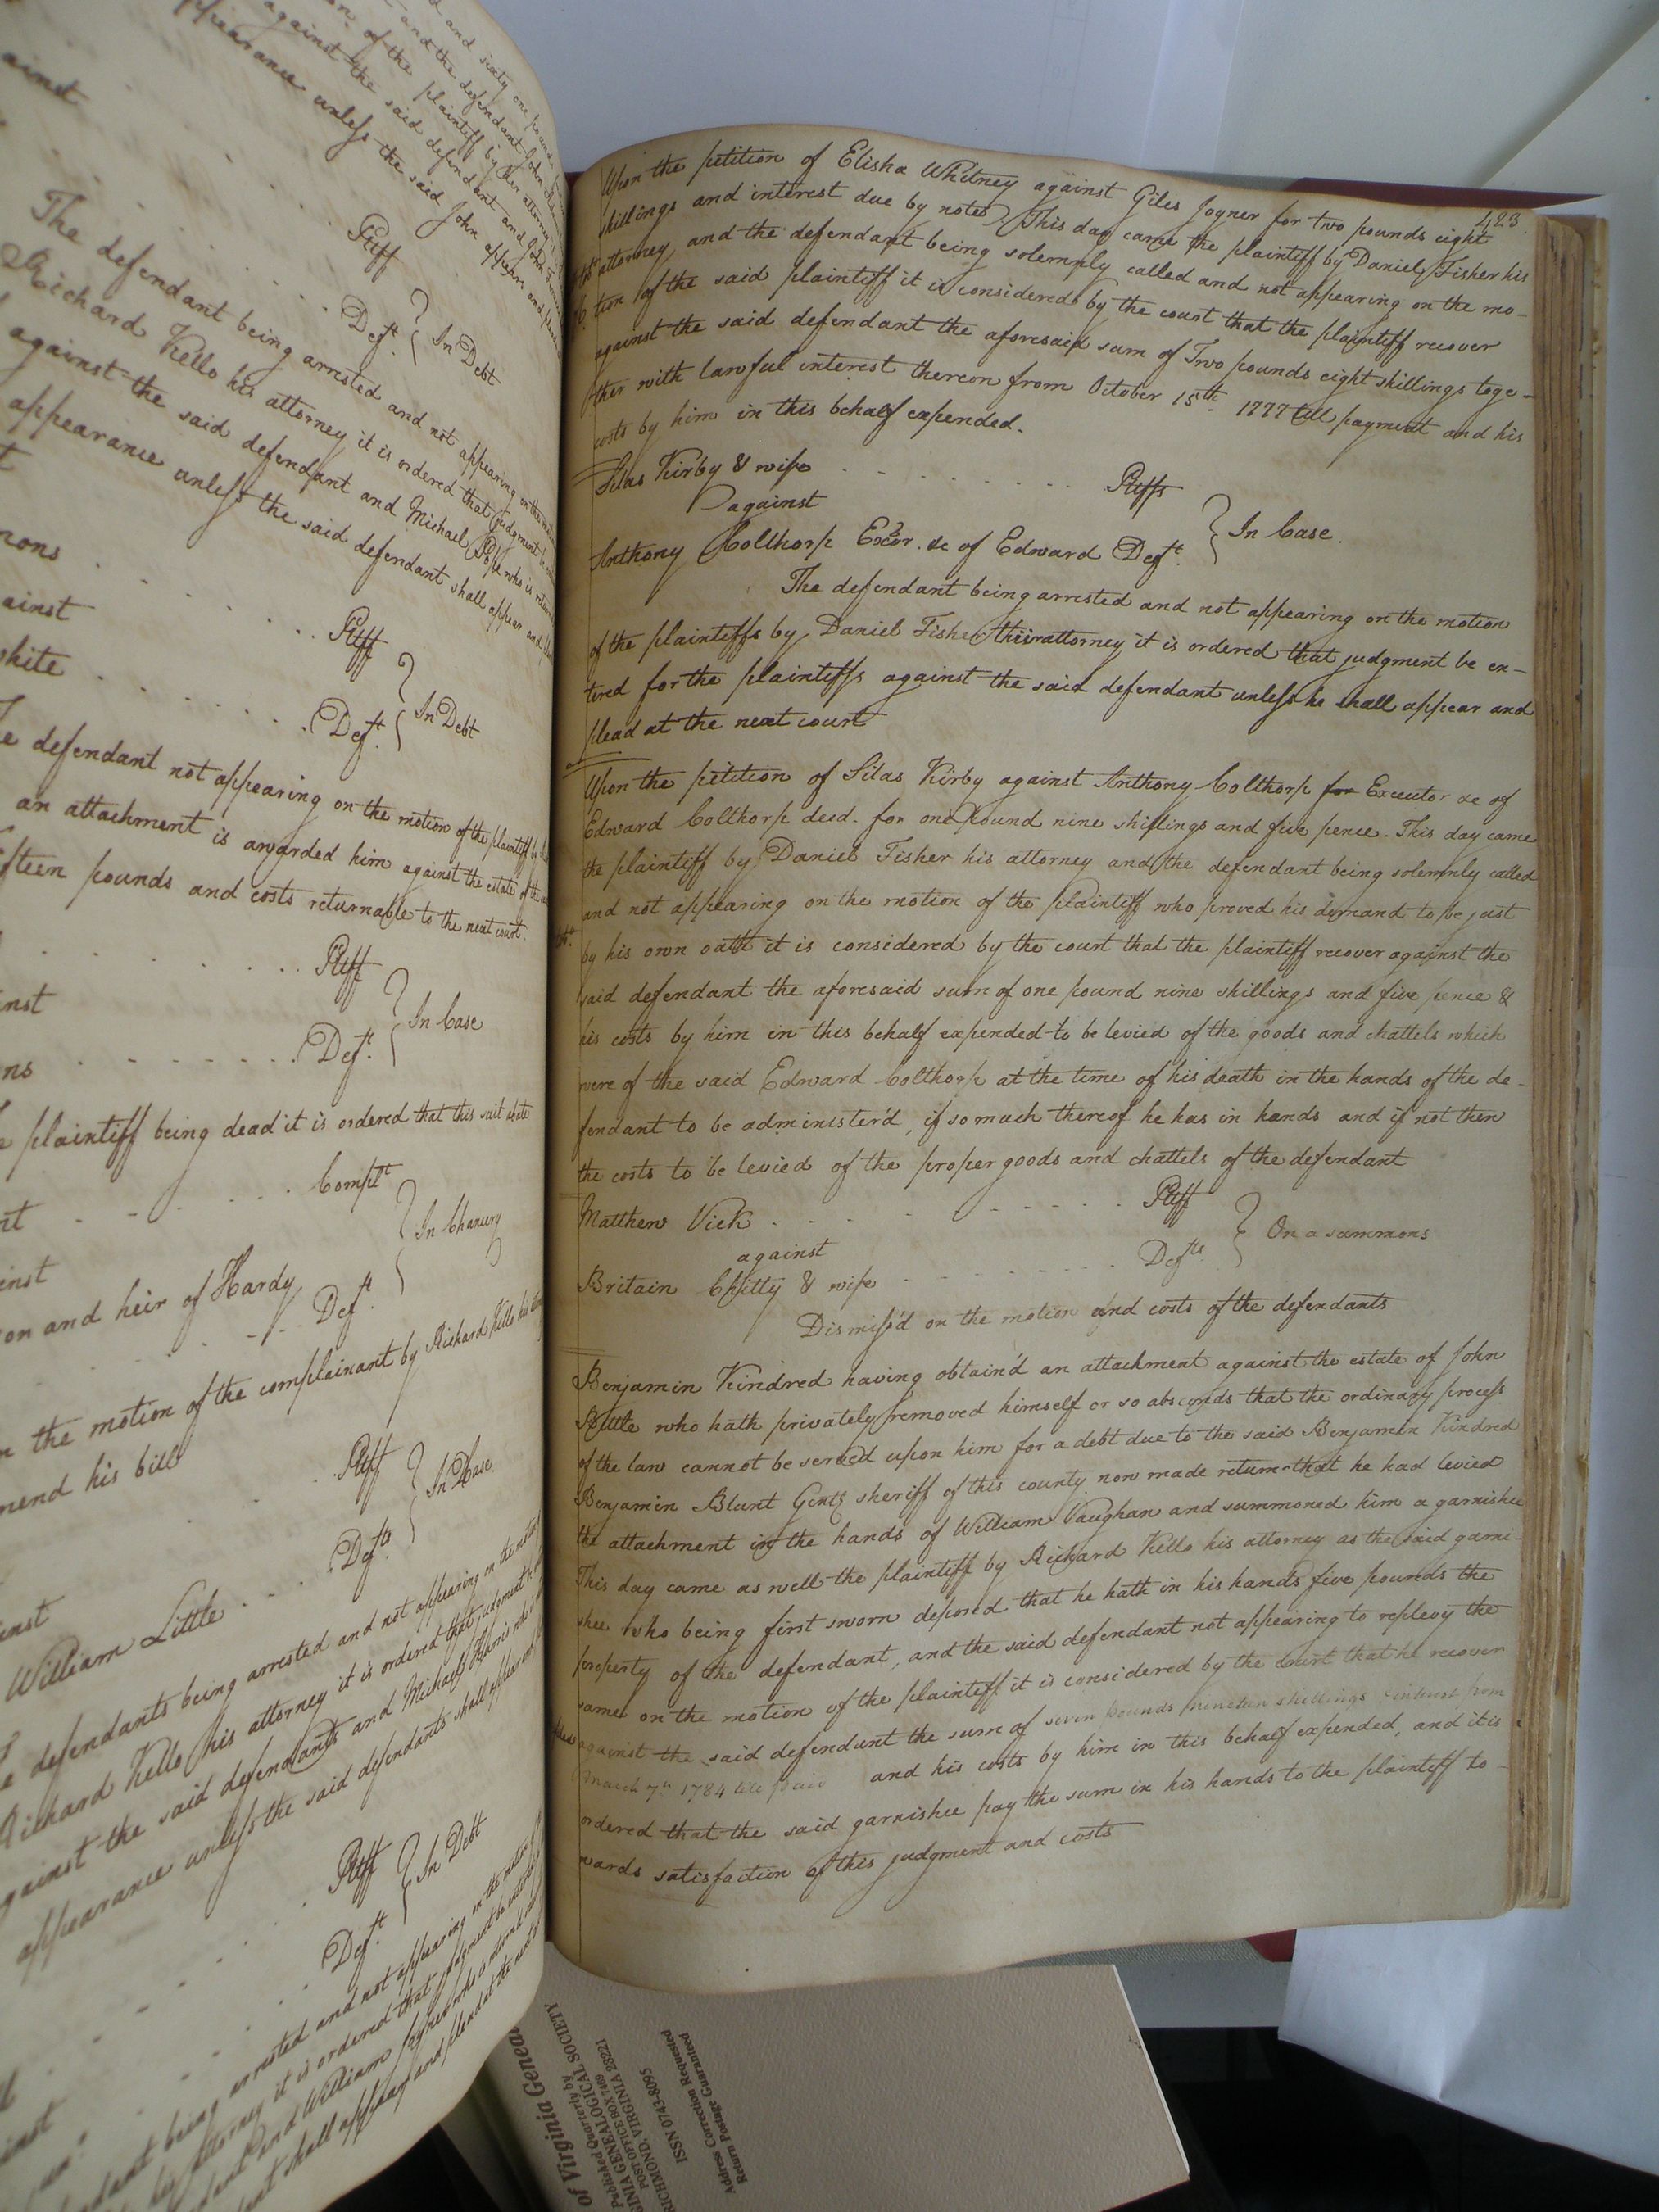 and sixty one pound
and the defendant John
of the plaintiff by his attorney
against the said defendant and John
appearance unless the said John appears and plead
ainst
Pltff
Deft. } In Debt
The defendant being arrested and not appearing on the motion
Richard Kello his attorney it is ordered that judgment be
against the said defendant and Michael who is return
appearance unless the said defendant shall appear and
mons
Pltff
ainst
white
Deft. } In Debt
e defendant not appearing on the motion of the plaintiff by
an attachment is awarded him against the estate of the
fteen pounds and costs returnable to the next court
Pltff
inst } In Case
ns Deft.
e plaintiff being dead it is ordered that this suit abate
nt Complt
inst } In Chancery
on and heir of Hardy
Deft.
n the motion of the complainant by Richard Kello his
mend his bill
Pltff
inst } In Case
William Little Defts.
e defendants being arrested and not appearing on the motion
Richard Kello his attorney it is ordered that judgment
gainst the said defendants and Michael Harris
appearance unless the said defendants shall appear
Pltff
} In Debt
Deft.
inst
ndant being arrested and not appearing on the motion
his attorney it is ordered that judgment be entered
dant and William Joyner who is returned
dant shall appear and plead at the next
423.
Upon the petition of Elisha Whitney against Giles Joyner for two pounds eight
shillings and interest due by note This day came the plaintiff by Daniel Fisher his
attorney and the defendant being solemnly called and not appearing on the mo-
tion of the said plaintiff it is considered by the court that the plaintiff recover
against the said defendant the aforesaid sum of Two pounds eight shillings toge-
ther with lawful interest thereon from October 15th. 1777 till payment and his
costs by him in this behalf expended.
Silas Kirby & wife Pltffs
against } In Case.
Anthony Colthorp Exor. &c of Edward Deft.
The defendant being arrested and not appearing on the motion
of the plaintiffs by Daniel Fisher their attorney it is ordered that judgment be en-
tered for the plaintiffs against the said defendant unless he shall appear and
plead at the next court
Upon the petition of Silas Kirby against Anthony Colthorp for Executor &c of
Edward Colthorp decd. for one pound nine shillings and five pence. This day came
the plaintiff by Daniel Fisher his attorney and the defendant being solemnly called
and not appearing on the motion of the plaintiff who proved his demand to be just
by his own oath it is considered by the court that the plaintiff recover against the
said defendant the aforesaid sum of one pound nine shillings and five pence &
his costs by him in this behalf expended to be levied of the goods and chattels which
were of the said Edward Colthorp at the time of his death in the hands of the de-
fendant to be administer'd, if so much thereof he has in hands and if not then
the costs to be levied of the proper goods and chattels of the defendant
Matthew Vick Pltff
against } On a summons
Britain Chitty & wife Defts
Dismiss'd on the motion and costs of the defendants
Benjamin Kindred having obtain'd an attachment against the estate of John
Bittle who hath privately removed himself or so absconds that the ordinary process
of the law cannot be served upon him for a debt due to the said Benjamin Kindred
Benjamin Blunt Gent. sheriff of this county now made return that he had levied
the attachment in the hands of William Vaughan and summoned him a garnishee
This day came as well the plaintiff by Richard Kello his attorney as the said garni-
shee who being first sworn deposed that he hath in his hands five pounds the
property of the defendant, and the said defendant not appearing to replevy the
same on the motion of the plaintiff it is considered by the court that he recover
against the said defendant the sum of seven pounds nineteen shillings & interest from
March 7th 1784 till paid and his costs by him in this behalf expended, and it is
ordered that the said garnishee pay the sum in his hands to the plaintiff to-
wards satisfaction of this judgment and costs
of Virginia Genea
Published Quarterly by
GINIA GENEALOGICAL SOCIETY
POST OFFICE BOX 7469
RICHMOND, VIRGINIA 23221
ISSN 0743-8095
Address Correction Requested
Return Postage Guaranteed